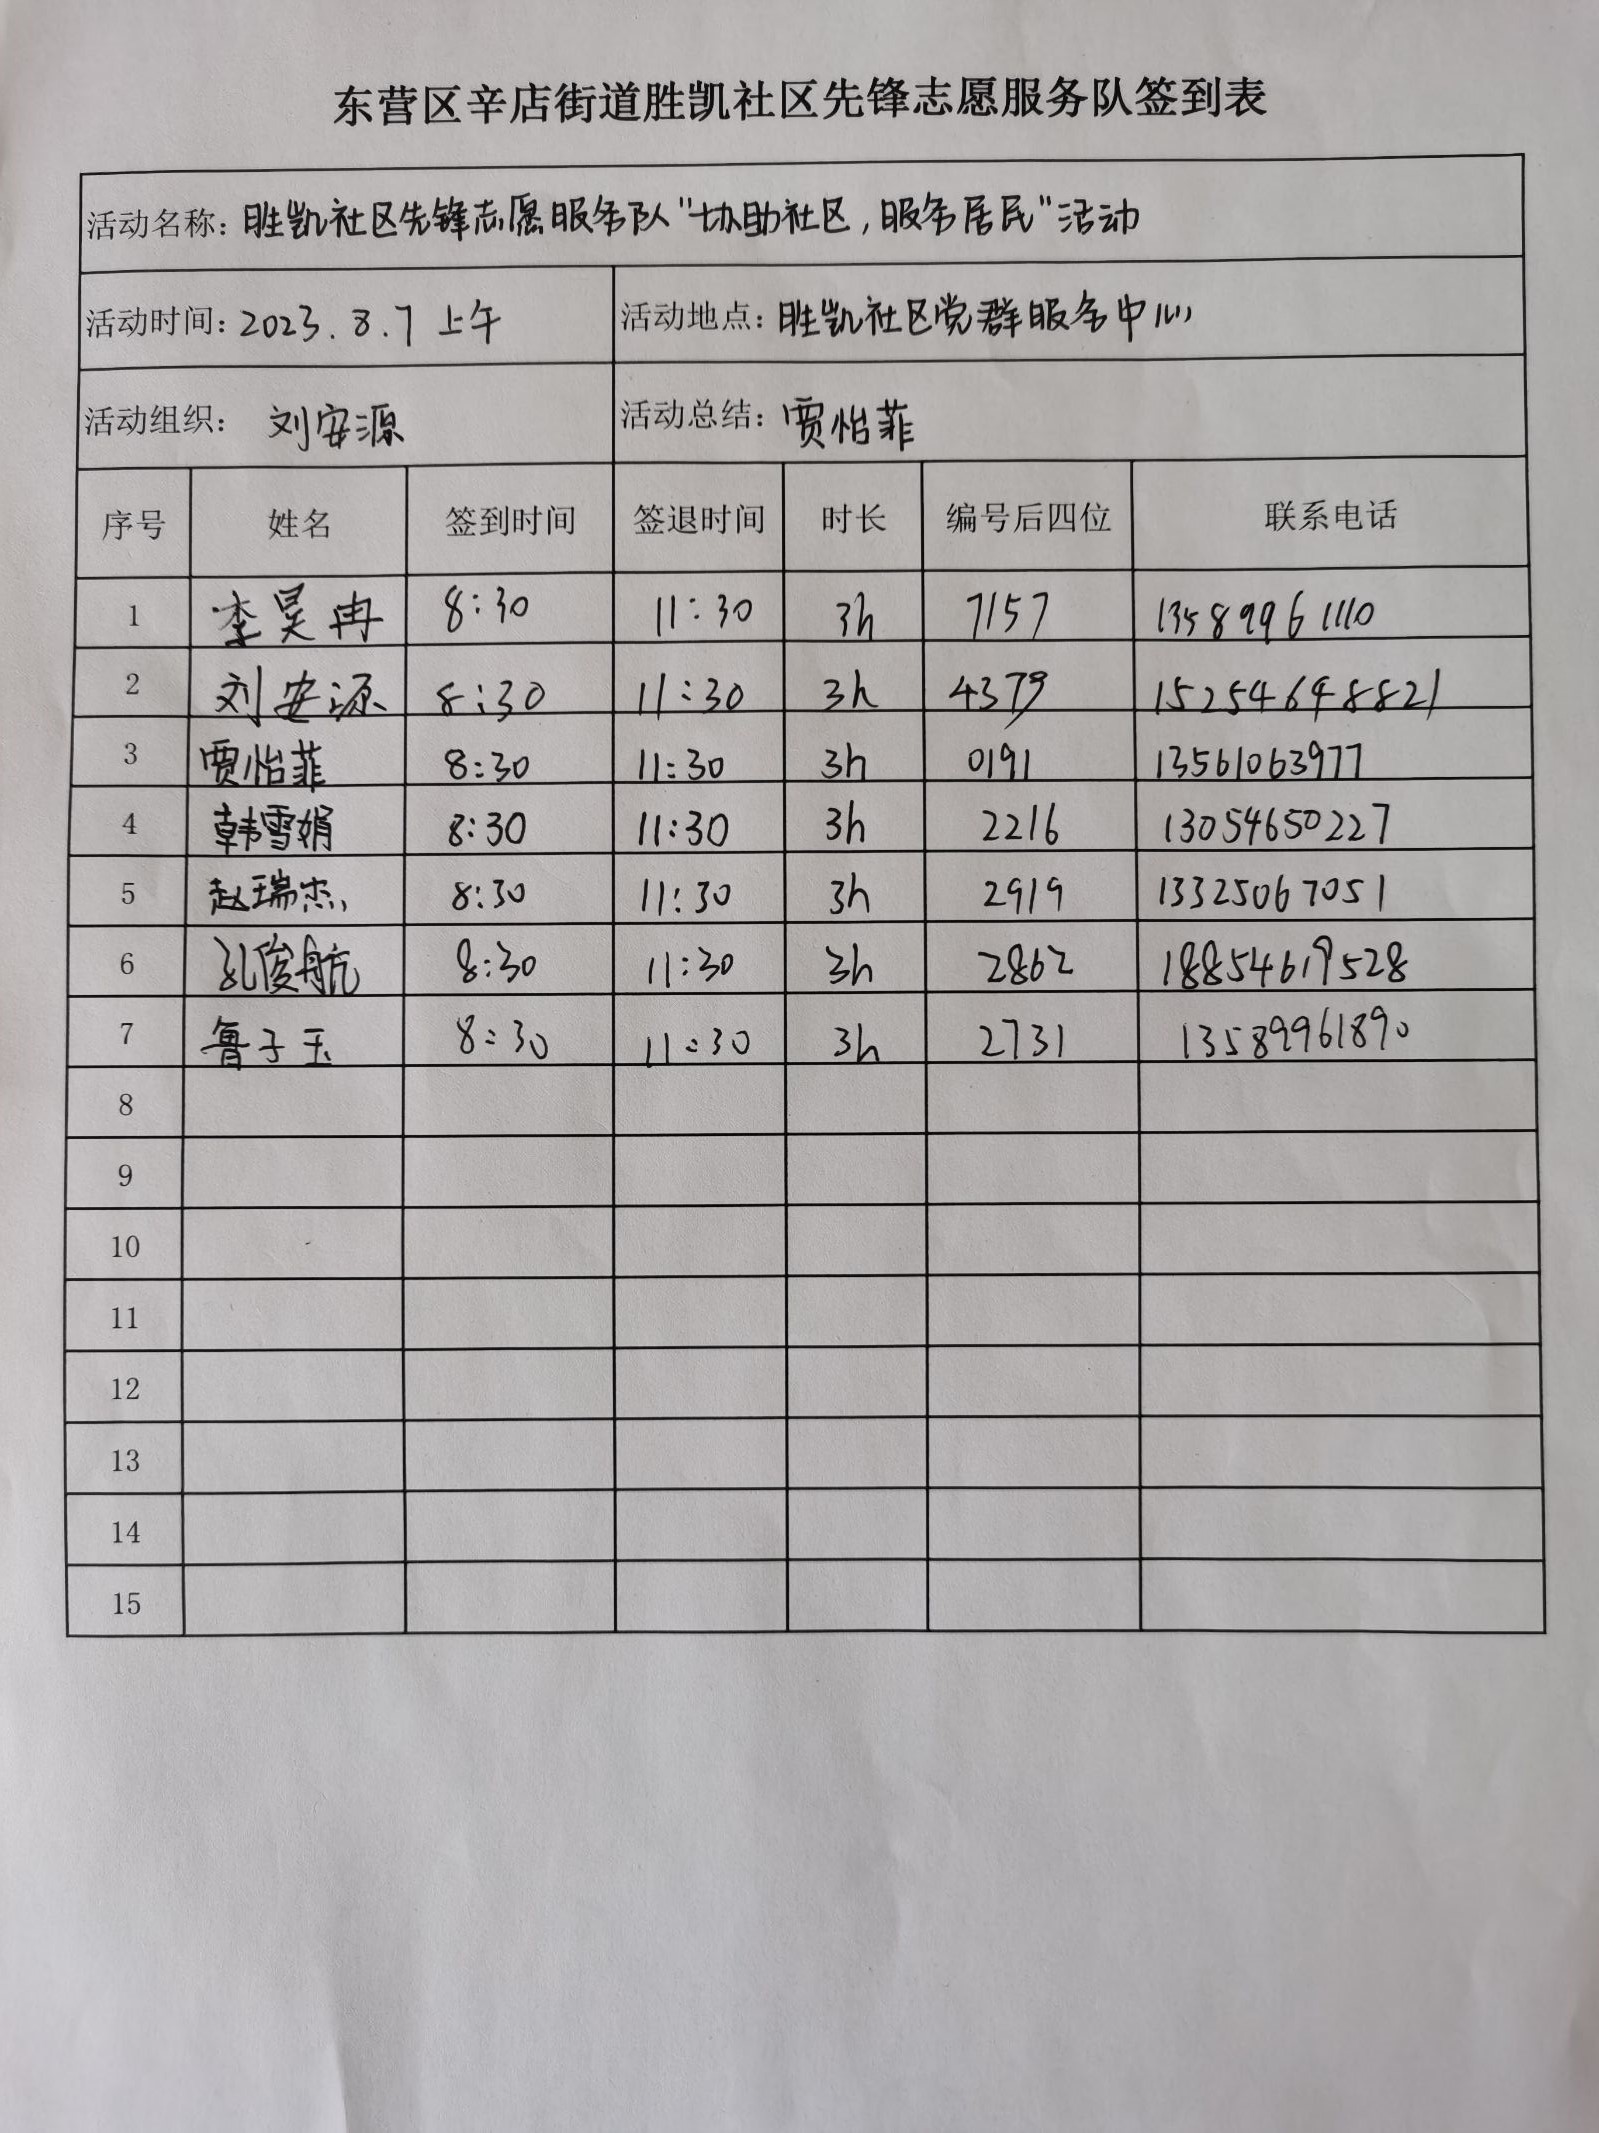 东营区辛店街道胜凯社区先锋志愿服务队签到表
活动名称：胜凯社区先锋志愿服务队"协助社区，服务居民"活动
活动时间：2023.8.7 上午 活动地点：胜凯社区党群服务中心
活动组织：刘安源 活动总结：贾怡菲
序号 姓名 签到时间 签退时间 时长 编号后四位 联系电话
1 李昊冉 8:30 11:30 3h 7157 13589961110
2 刘安源 8:30 11:30 3h 4379 15254648821
3 贾怡菲 8:30 11:30 3h 0191 13561063977
4 韩雪娟 8:30 11:30 3h 2216 13054650227
5 赵瑞杰 8:30 11:30 3h 2919 13325067051
6 孔俊航 8:30 11:30 3h 2862 18854619528
7 鲁子玉 8:30 11:30 3h 2731 13589961890
8
9
10
11
12
13
14
15